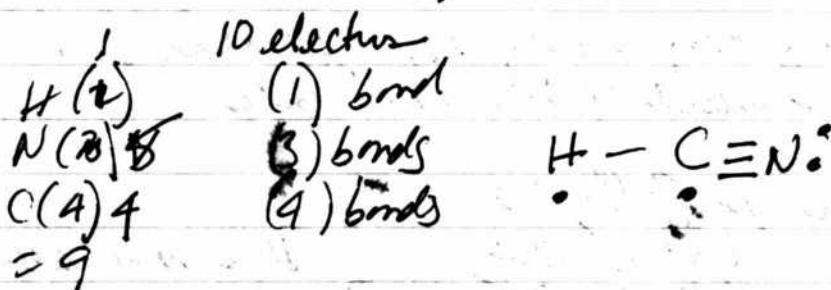 1 10 electrons
H (1) (1) bond
N 5 (3) bonds H − C ≡ N
C (4) 4 (4) bonds
= 9